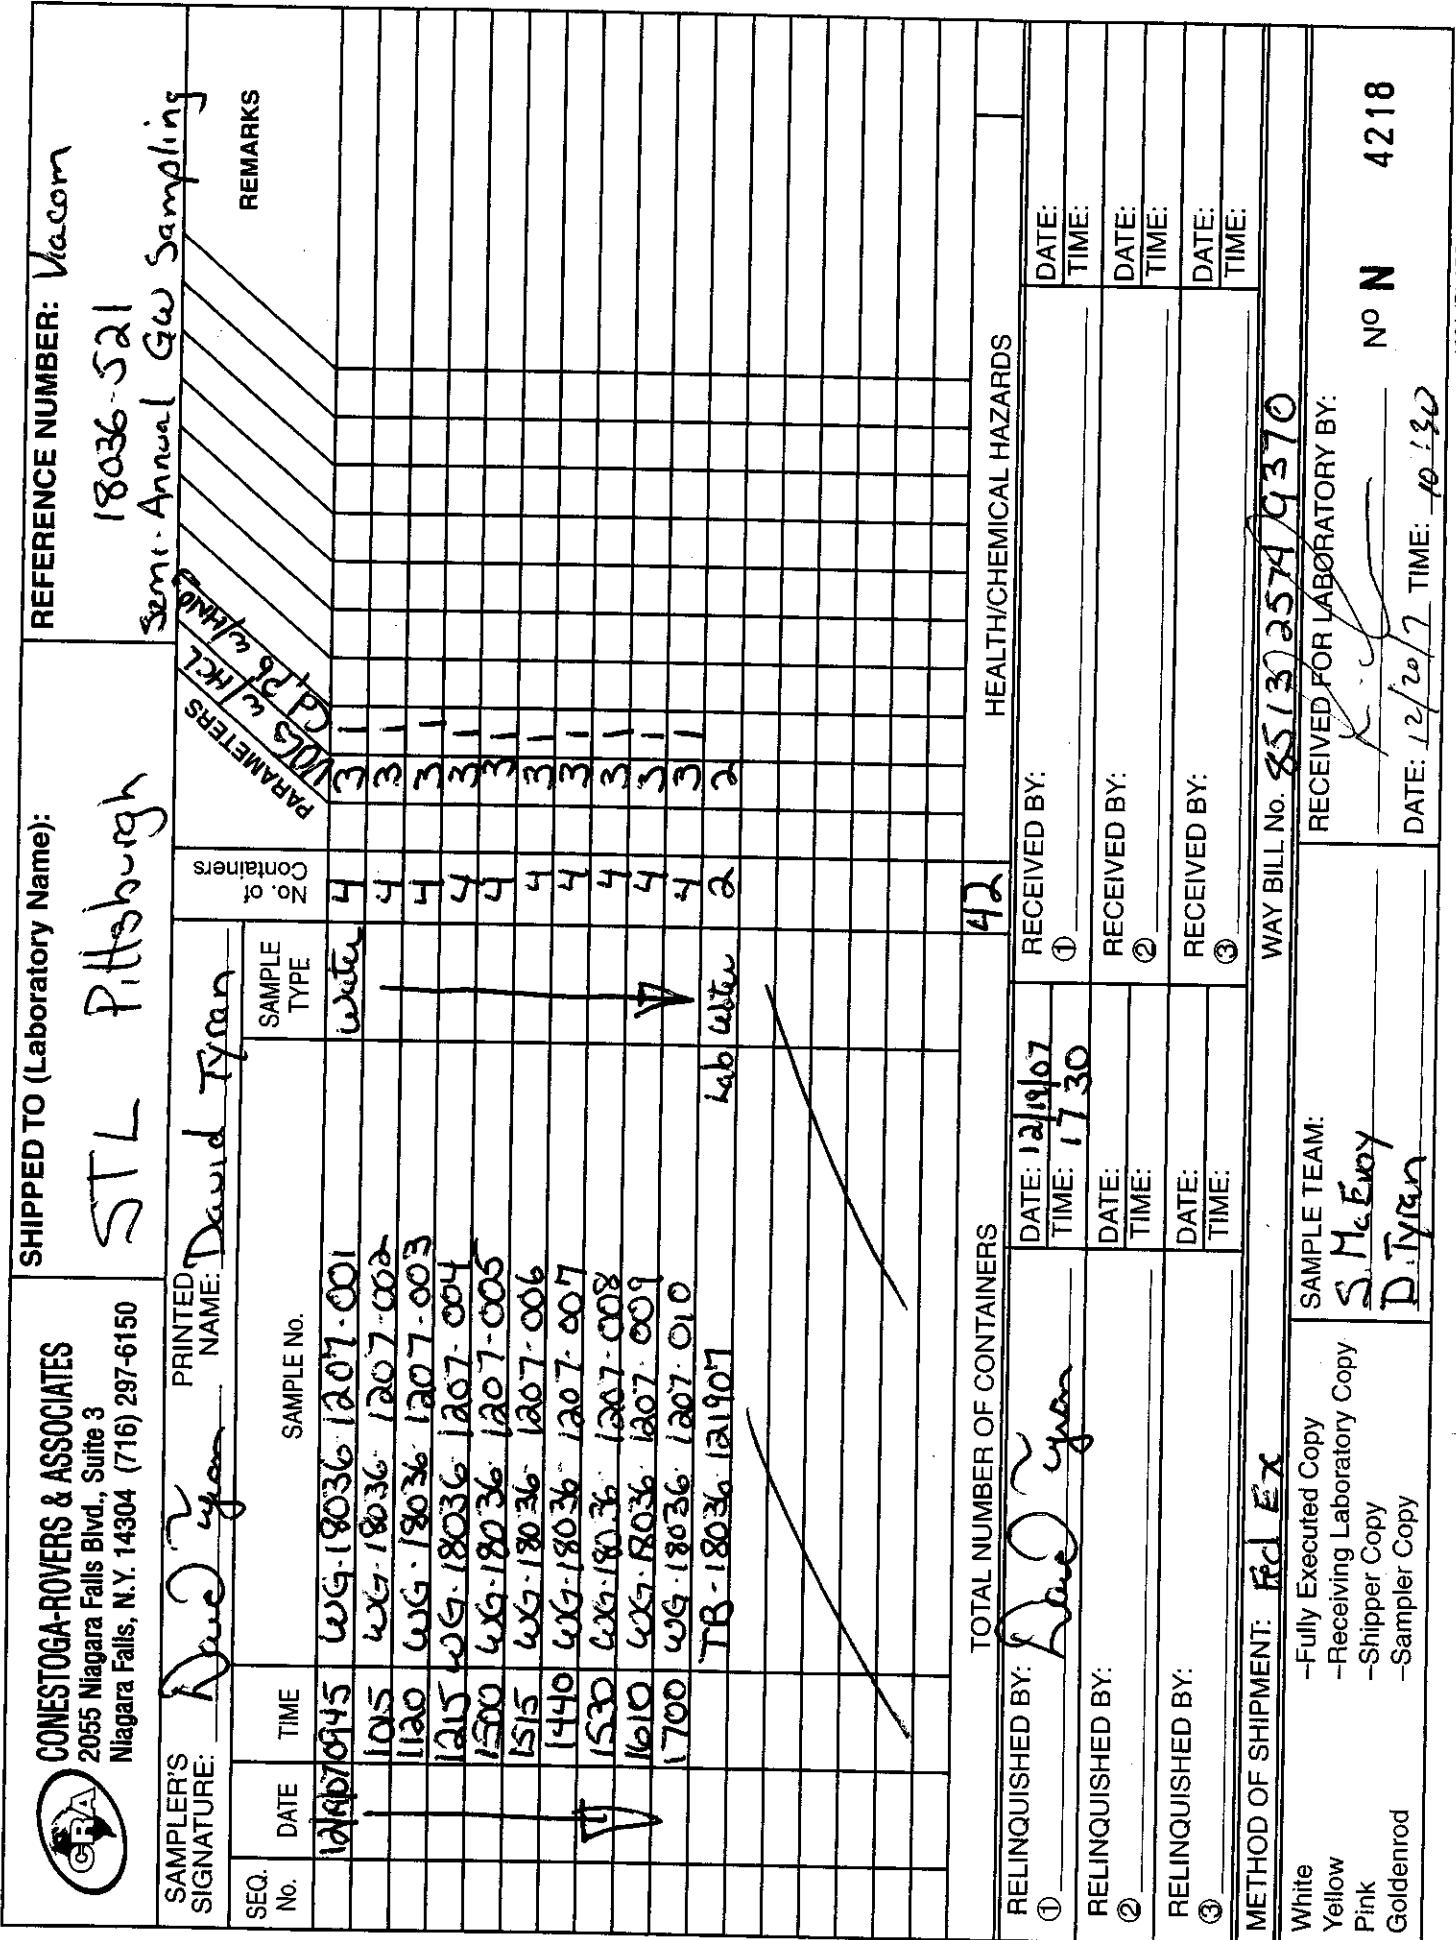 CRA
CONESTOGA-ROVERS & ASSOCIATES
2055 Niagara Falls Blvd., Suite 3
Niagara Falls, N.Y. 14304 (716) 297-6150
SHIPPED TO (Laboratory Name):
STL Pittsburgh
REFERENCE NUMBER: Viacom
18036-521
Semi-Annual GW Sampling
SAMPLER'S SIGNATURE: David Tyran
PRINTED NAME: David Tyran
PARAMETERS
VOCs w/HCL
Cd, Pb w/HNO3
REMARKS
SEQ. No. DATE TIME SAMPLE No. SAMPLE TYPE No. of Containers
12/19/07 0945 WG-18036-1207-001 Water 4 3 1
1015 WG-18036-1207-002 4 3 1
1120 WG-18036-1207-003 4 3 1
1215 WG-18036-1207-004 4 3 1
1500 WG-18036-1207-005 4 3 1
1515 WG-18036-1207-006 4 3 1
1440 WG-18036-1207-007 4 3 1
1530 WG-18036-1207-008 4 3 1
1610 WG-18036-1207-009 4 3 1
1700 WG-18036-1207-010 4 3 1
TB-18036-121907 Lab Water 2 2
TOTAL NUMBER OF CONTAINERS 42
HEALTH/CHEMICAL HAZARDS
RELINQUISHED BY: ① David Tyran DATE: 12/19/07 TIME: 1730 RECEIVED BY: ① DATE: TIME:
RELINQUISHED BY: ② DATE: TIME: RECEIVED BY: ② DATE: TIME:
RELINQUISHED BY: ③ DATE: TIME: RECEIVED BY: ③ DATE: TIME:
METHOD OF SHIPMENT: Fed Ex
WAY BILL No. 851325749370
White -Fully Executed Copy
Yellow -Receiving Laboratory Copy
Pink -Shipper Copy
Goldenrod -Sampler Copy
SAMPLE TEAM:
S. McEvoy
D. Tyran
RECEIVED FOR LABORATORY BY:
DATE: 12/20/7 TIME: 10:30
Nº N 4218